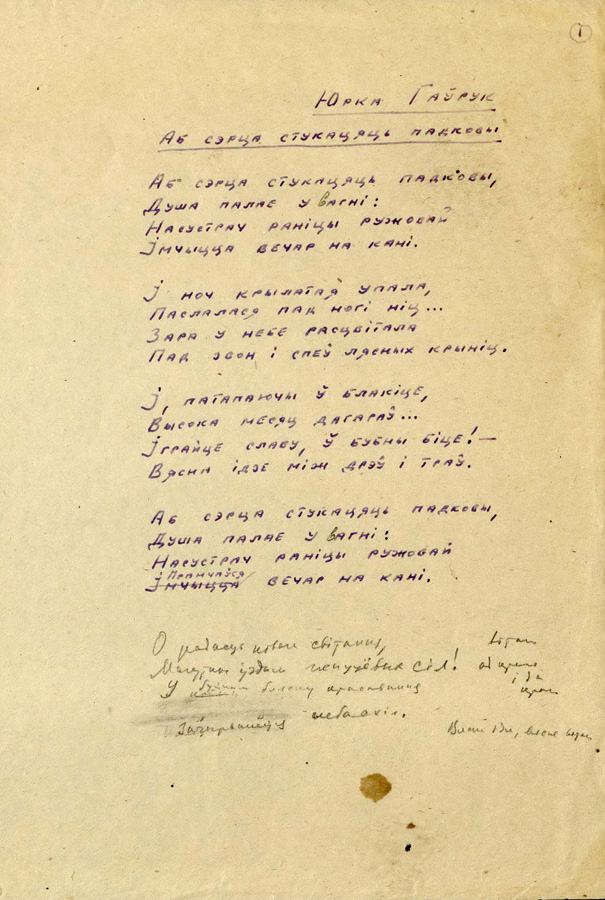 1
Юрка Гаўрук
Аб сэрца стукацяць падковы
Аб сэрца стукацяць падковы,
Душа палае у вагні:
Насустрач раніцы ружовай
Імчыцца вечар на кані.
І ноч крылатая упала,
Паслалася пад ногі ніц...
Зара у небе расцвітала
Пад звон і спеў лясных крыніц.
І, патапаючы ў блакіце,
Высока месяц дагараў...
Іграйце славу, ў бубны біце! —
Вясна ідзе між дрэў і траў.
Аб сэрца стукацяць падковы,
Душа палае у вагні:
Насустрач раніцы ружовай
Прамчаўся
Імчыцца вечар на кані.
О радасць новага світання,
сіл!
У
небасхіл.